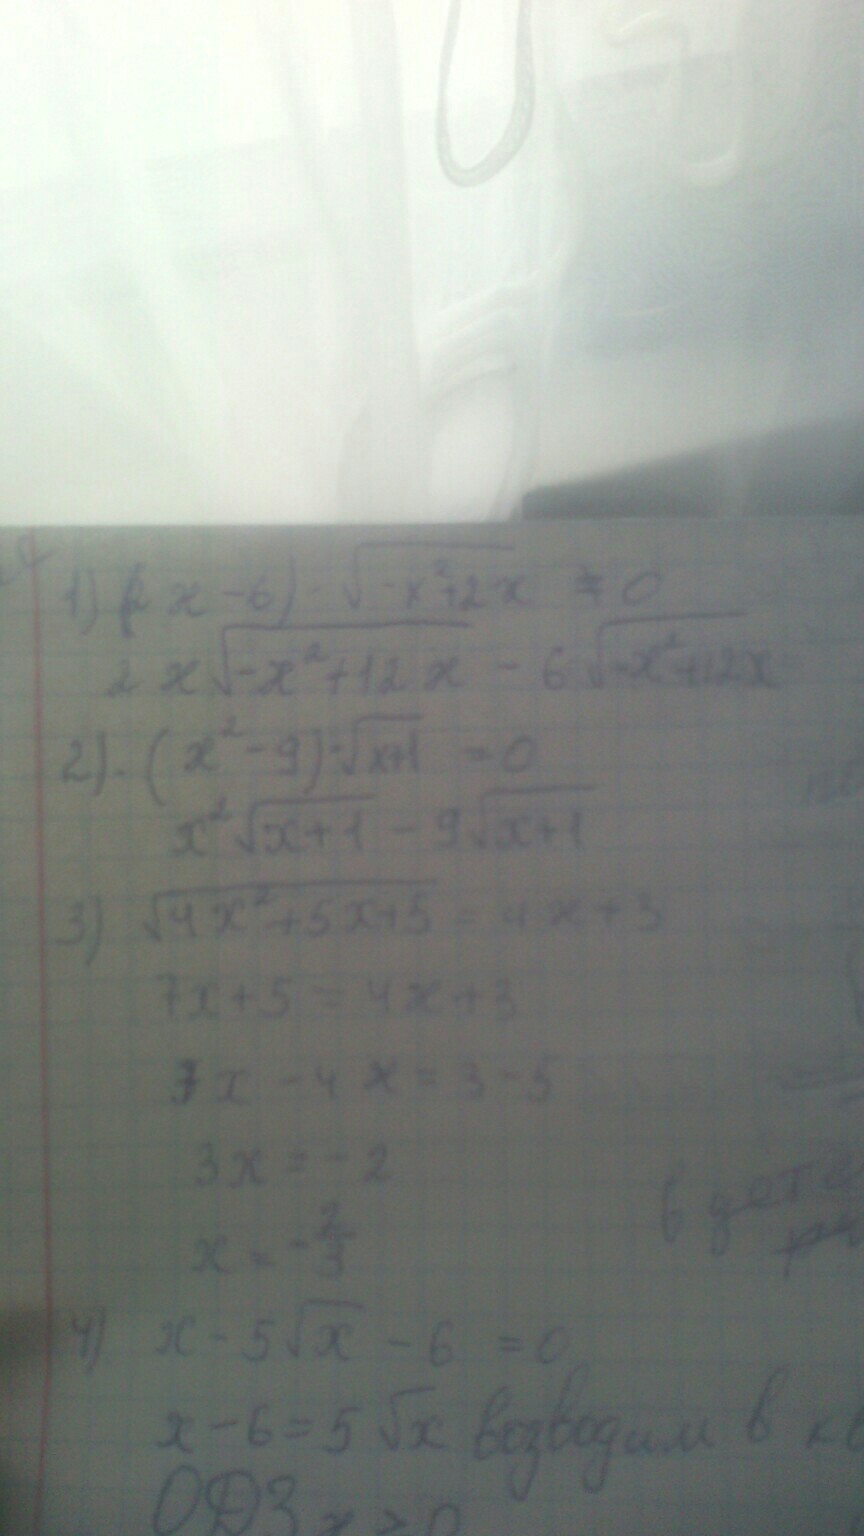 1) (2x-6)·√-x²+2x = 0
2x√-x²+12x - 6√-x²+12x
2). (x²-9)·√x+1 = 0
x²√x+1 - 9√x+1
3) √4x²+5x+5 = 4x+3
7x+5 = 4x+3
7x-4x = 3-5
3x = -2
x = -2/3
4) x-5√x-6 = 0
x-6 = 5√x возводим в
ОДЗ x>0